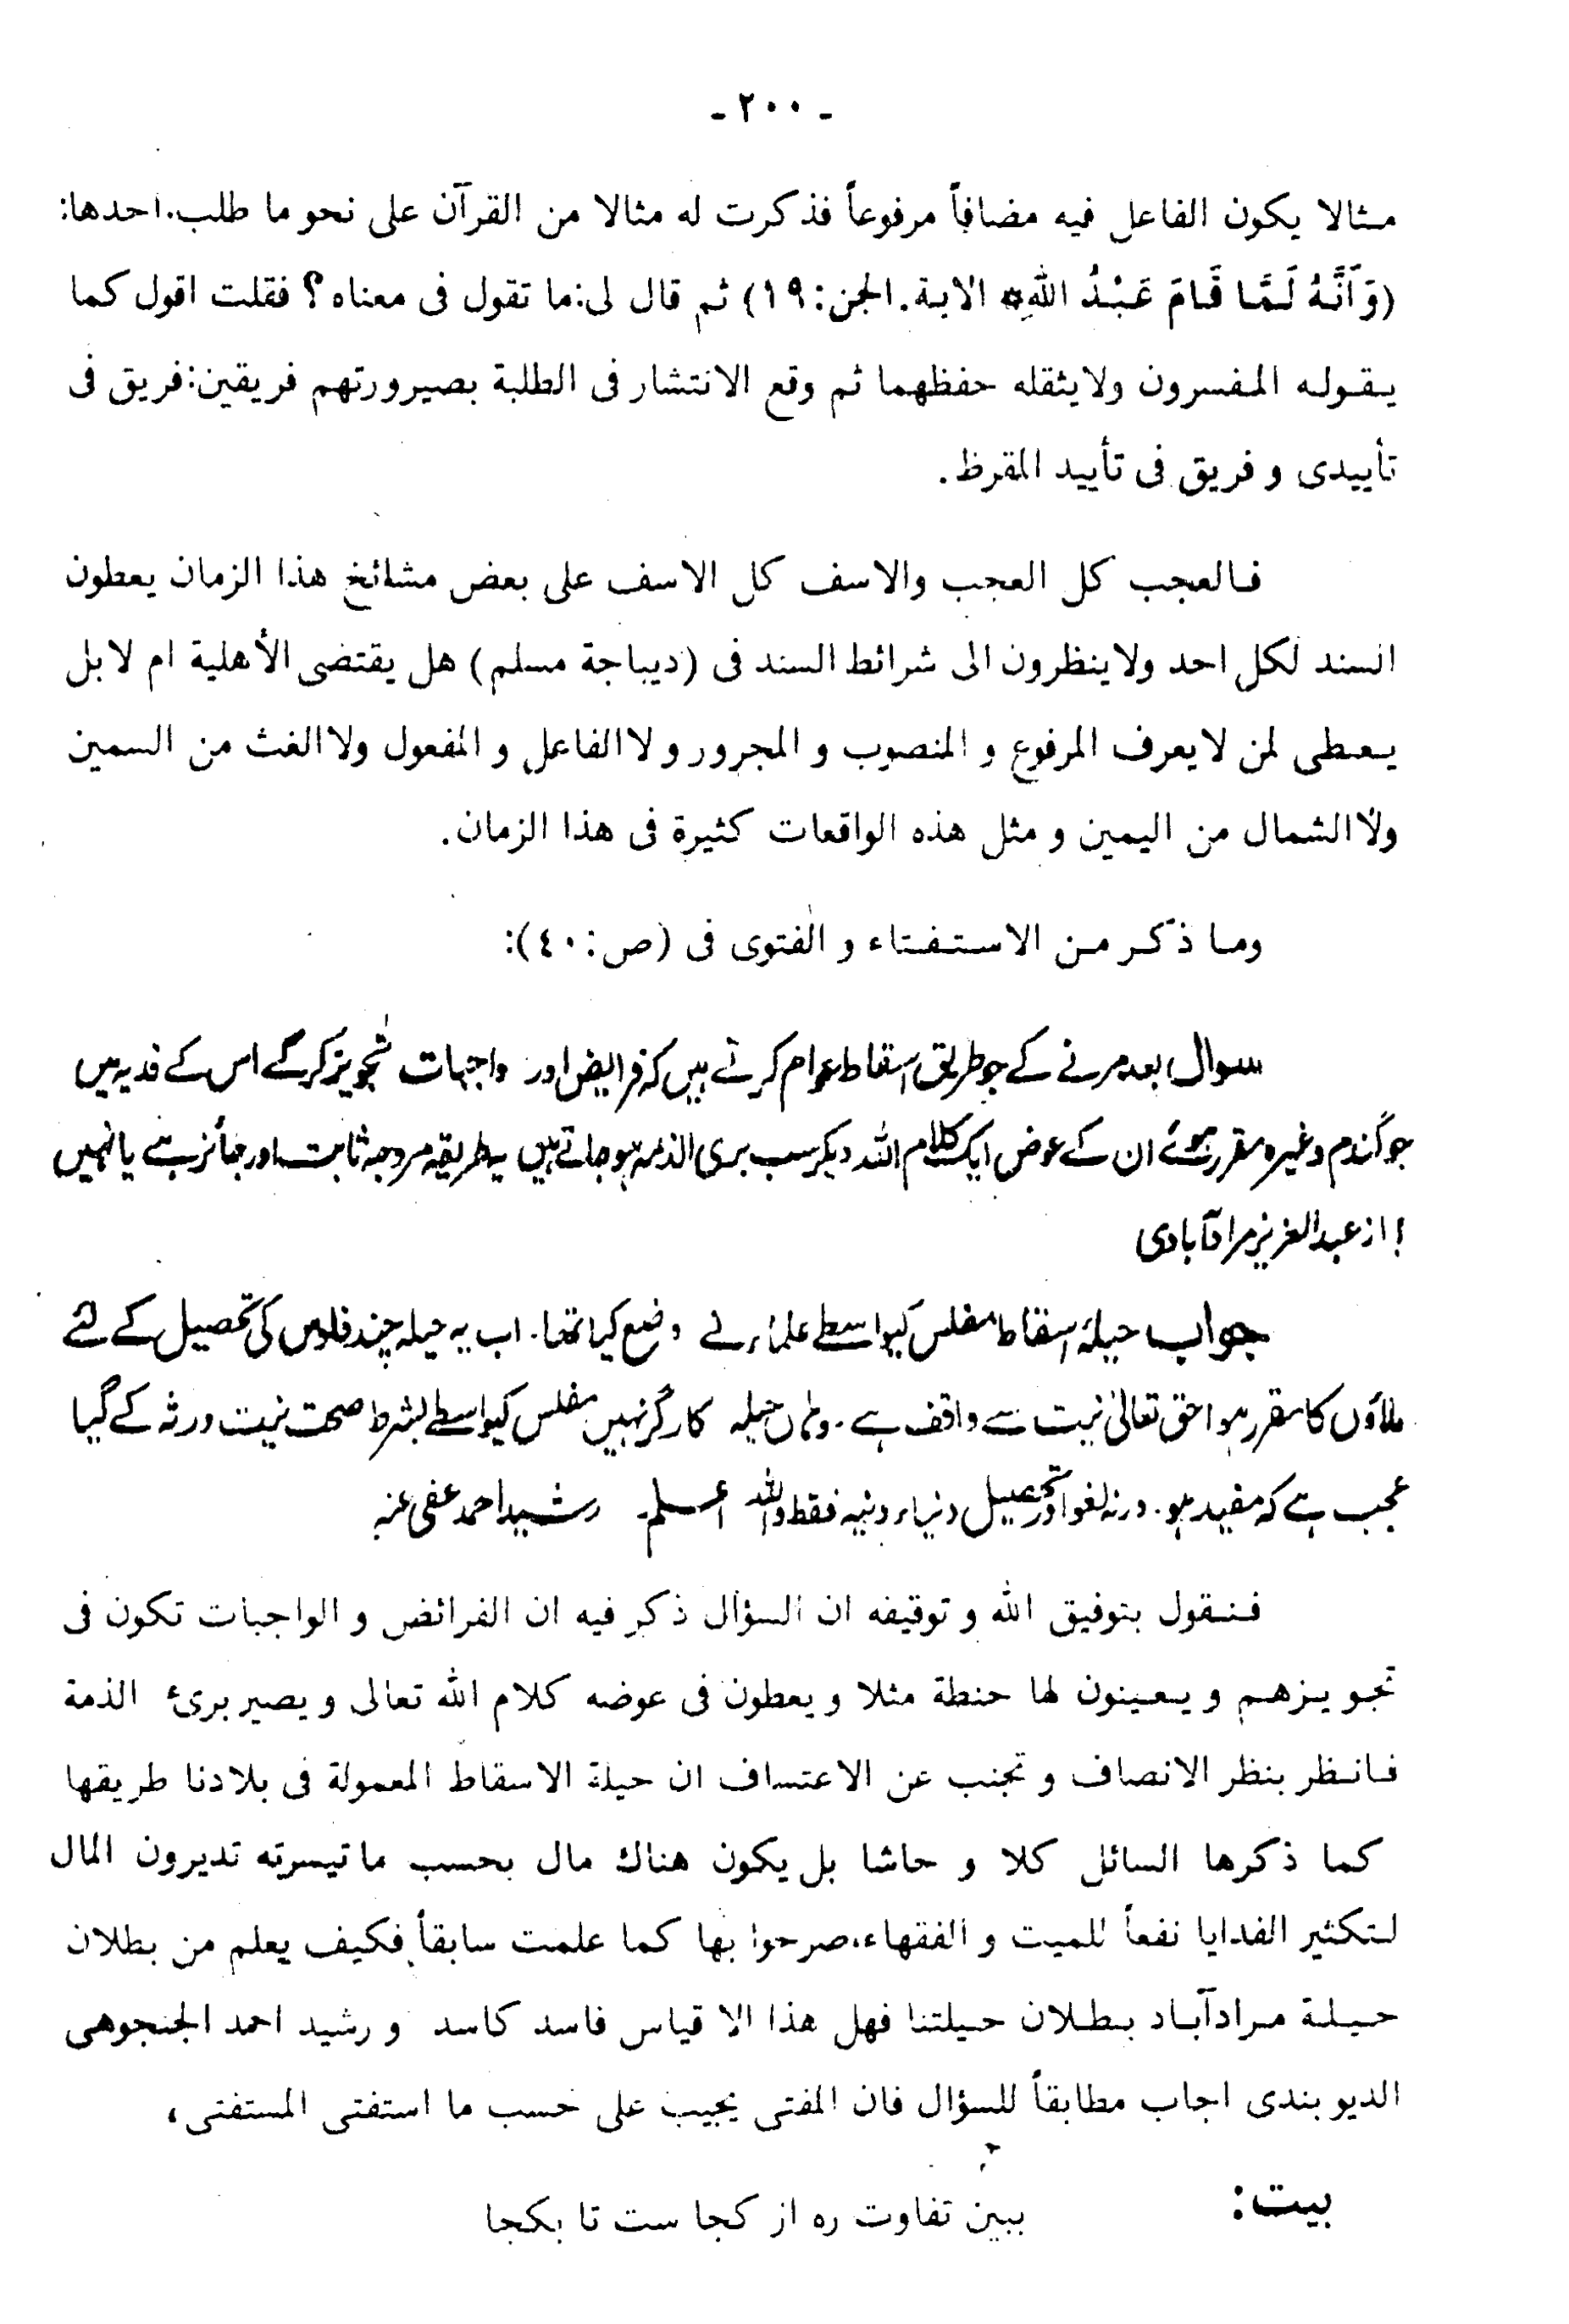 - ٢٠٠ -
مثالا يكون الفاعل فيه مضافاً مرفوعاً فذكرت له مثالا من القرآن على نحو ما طلب. احدها:
(وَاَنَّهُ لَمَّا قَامَ عَبْدُ اللّٰهِ* الاية. الجن: ١٩) ثم قال لى: ما تقول فى معناه؟ فقلت اقول كما
يقوله المفسرون ولايثقله حفظهما ثم وقع الانتشار فى الطلبة بصيرورتهم فريقين: فريق فى
تأييدى و فريق فى تأييد المقرظ.
فالعجب كل العجب والاسف كل الاسف على بعض مشائخ هذا الزمان يعطون
السند لكل احد ولاينظرون الى شرائط السند فى (ديباجة مسلم) هل يقتضى الأهلية ام لا بل
يعطى لمن لايعرف المرفوع و المنصوب و المجرور و لاالفاعل و المفعول ولاالغث من السمين
ولاالشمال من اليمين و مثل هذه الواقعات كثيرة فى هذا الزمان.
وما ذكر من الاستفتاء و الفتوى فى (ص: ٤٠):
سوال، بعد مرنے کے جو طریق اسقاط عوام کرتے ہیں کہ فرایض اور واجبات تجویز کر کے اس کے فدیہ میں
جو گندم وغیرہ مقرر ہوئے ان کے عوض ایک کلام اللہ دیکر سب بری الذمہ ہو جاتے ہیں یہ طریقہ مروجہ ثابت اور جائز ہے یا نہیں
؟ از عبدالعزیز مرادآبادی
جواب حیلۂ اسقاط مفلس کیواسطے علماء نے وضع کیا تھا. اب یہ حیلہ چند فلوس کی تحصیل کے لئے
ملاؤں کا مقرر ہوا حق تعالیٰ نیت سے واقف ہے. وہاں حیلہ کارگر نہیں مفلس کیواسطے بشرط صحت نیت ورثہ کے گیا
عجب ہے کہ مفید ہو. ورنہ لغو اور تحصیل دنیاء دنیہ فقط واللہ اعلم. رشید احمد عفی عنہ
فنقول بتوفيق الله و توقيفه ان السؤال ذكر فيه ان الفرائض و الواجبات تكون فى
تجويزهم و يعينون لها حنطة مثلا و يعطون فى عوضه كلام الله تعالى و يصير برئ الذمة
فانظر بنظر الانصاف و تجنب عن الاعتساف ان حيلة الاسقاط المعمولة فى بلادنا طريقها
كما ذكرها السائل كلا و حاشا بل يكون هناك مال بحسب ماتيسرته تديرون المال
لتكثير الفدايا نفعاً للميت و الفقهاء، صرحوا بها كما علمت سابقاً فكيف يعلم من بطلان
حيلة مرادآباد بطلان حيلتنا فهل هذا الا قياس فاسد كاسد و رشيد احمد الجنجوهى
الديوبندى اجاب مطابقاً للسؤال فان المفتى يجيب على حسب ما استفتى المستفتى،
بيت: ببين تفاوت ره از كجا ست تا بكجا